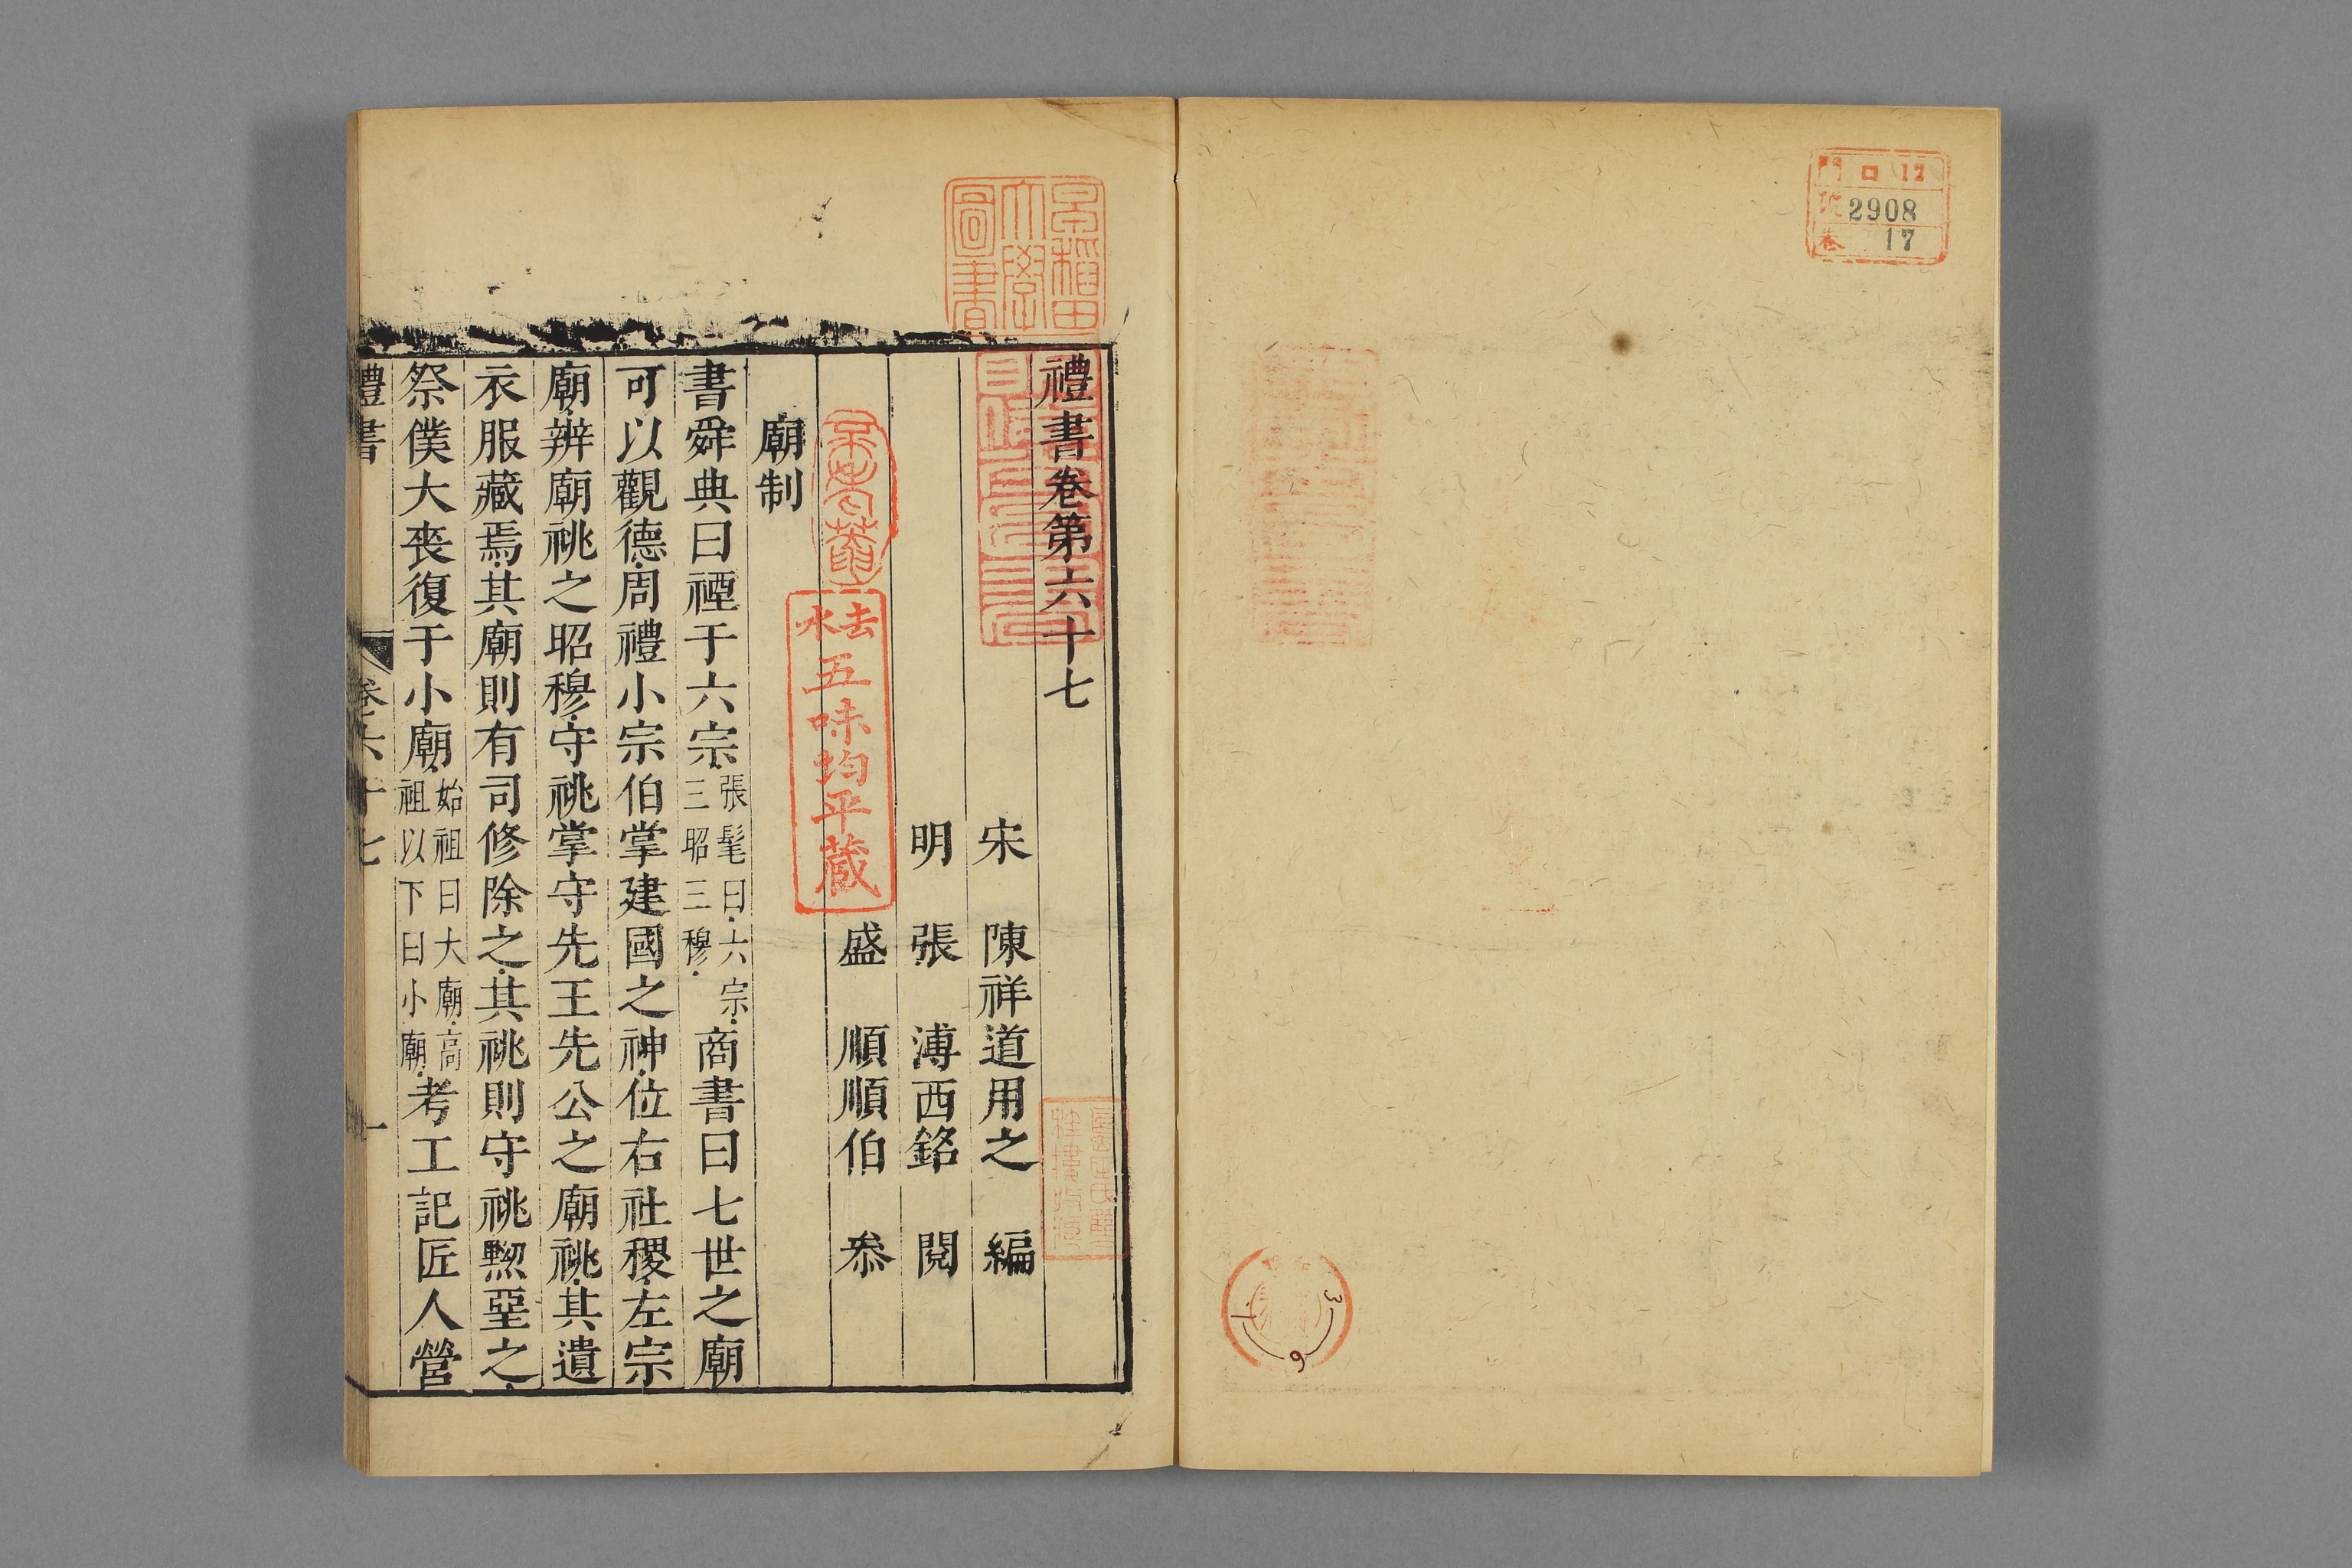 門 口 12
號 2908
卷 17
早稲田
大學
圖書
禮書卷第六十七
宋 陳祥道用之 編
明 張 溥西銘 閱
盛 順順伯 叅
去水
五味均平蔵
廟制
書舜典曰禋于六宗張髦曰六宗三昭三穆商書曰七世之廟
可以觀德周禮小宗伯掌建國之神位右社稷左宗
廟辨廟祧之昭穆守祧掌守先王先公之廟祧其遺
衣服藏焉其廟則有司修除之其祧則守祧黝堊之
祭僕大喪復于小廟始祖曰大廟高祖以下曰小廟考工記匠人營
禮書 卷六十七 一